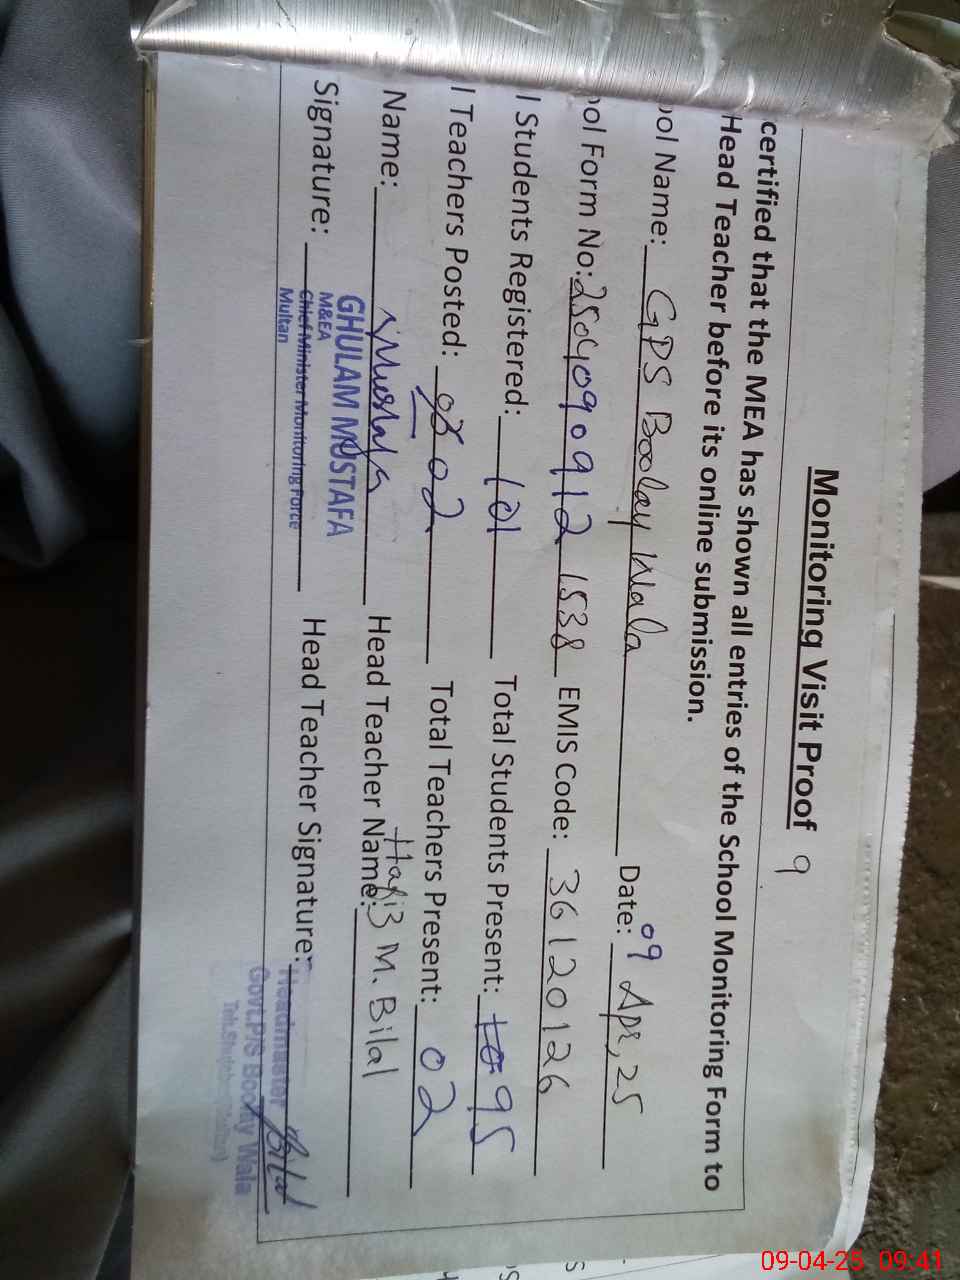 Monitoring Visit Proof 9
certified that the MEA has shown all entries of the School Monitoring Form to
Head Teacher before its online submission.
ool Name: GPS Boolay Wala Date: 09 Apr, 25
ool Form No: 25040909121538 EMIS Code: 36120126
l Students Registered: 101 Total Students Present: 95
l Teachers Posted: 02 Total Teachers Present: 02
Name: Mustafa Head Teacher Name: Hafiz M. Bilal
Signature: Head Teacher Signature: Bilal
GHULAM MUSTAFA
M&EA
Chief Minister Monitoring Force
Multan
Headmaster
Govt.P/S Boolay Wala
09-04-25 09:41